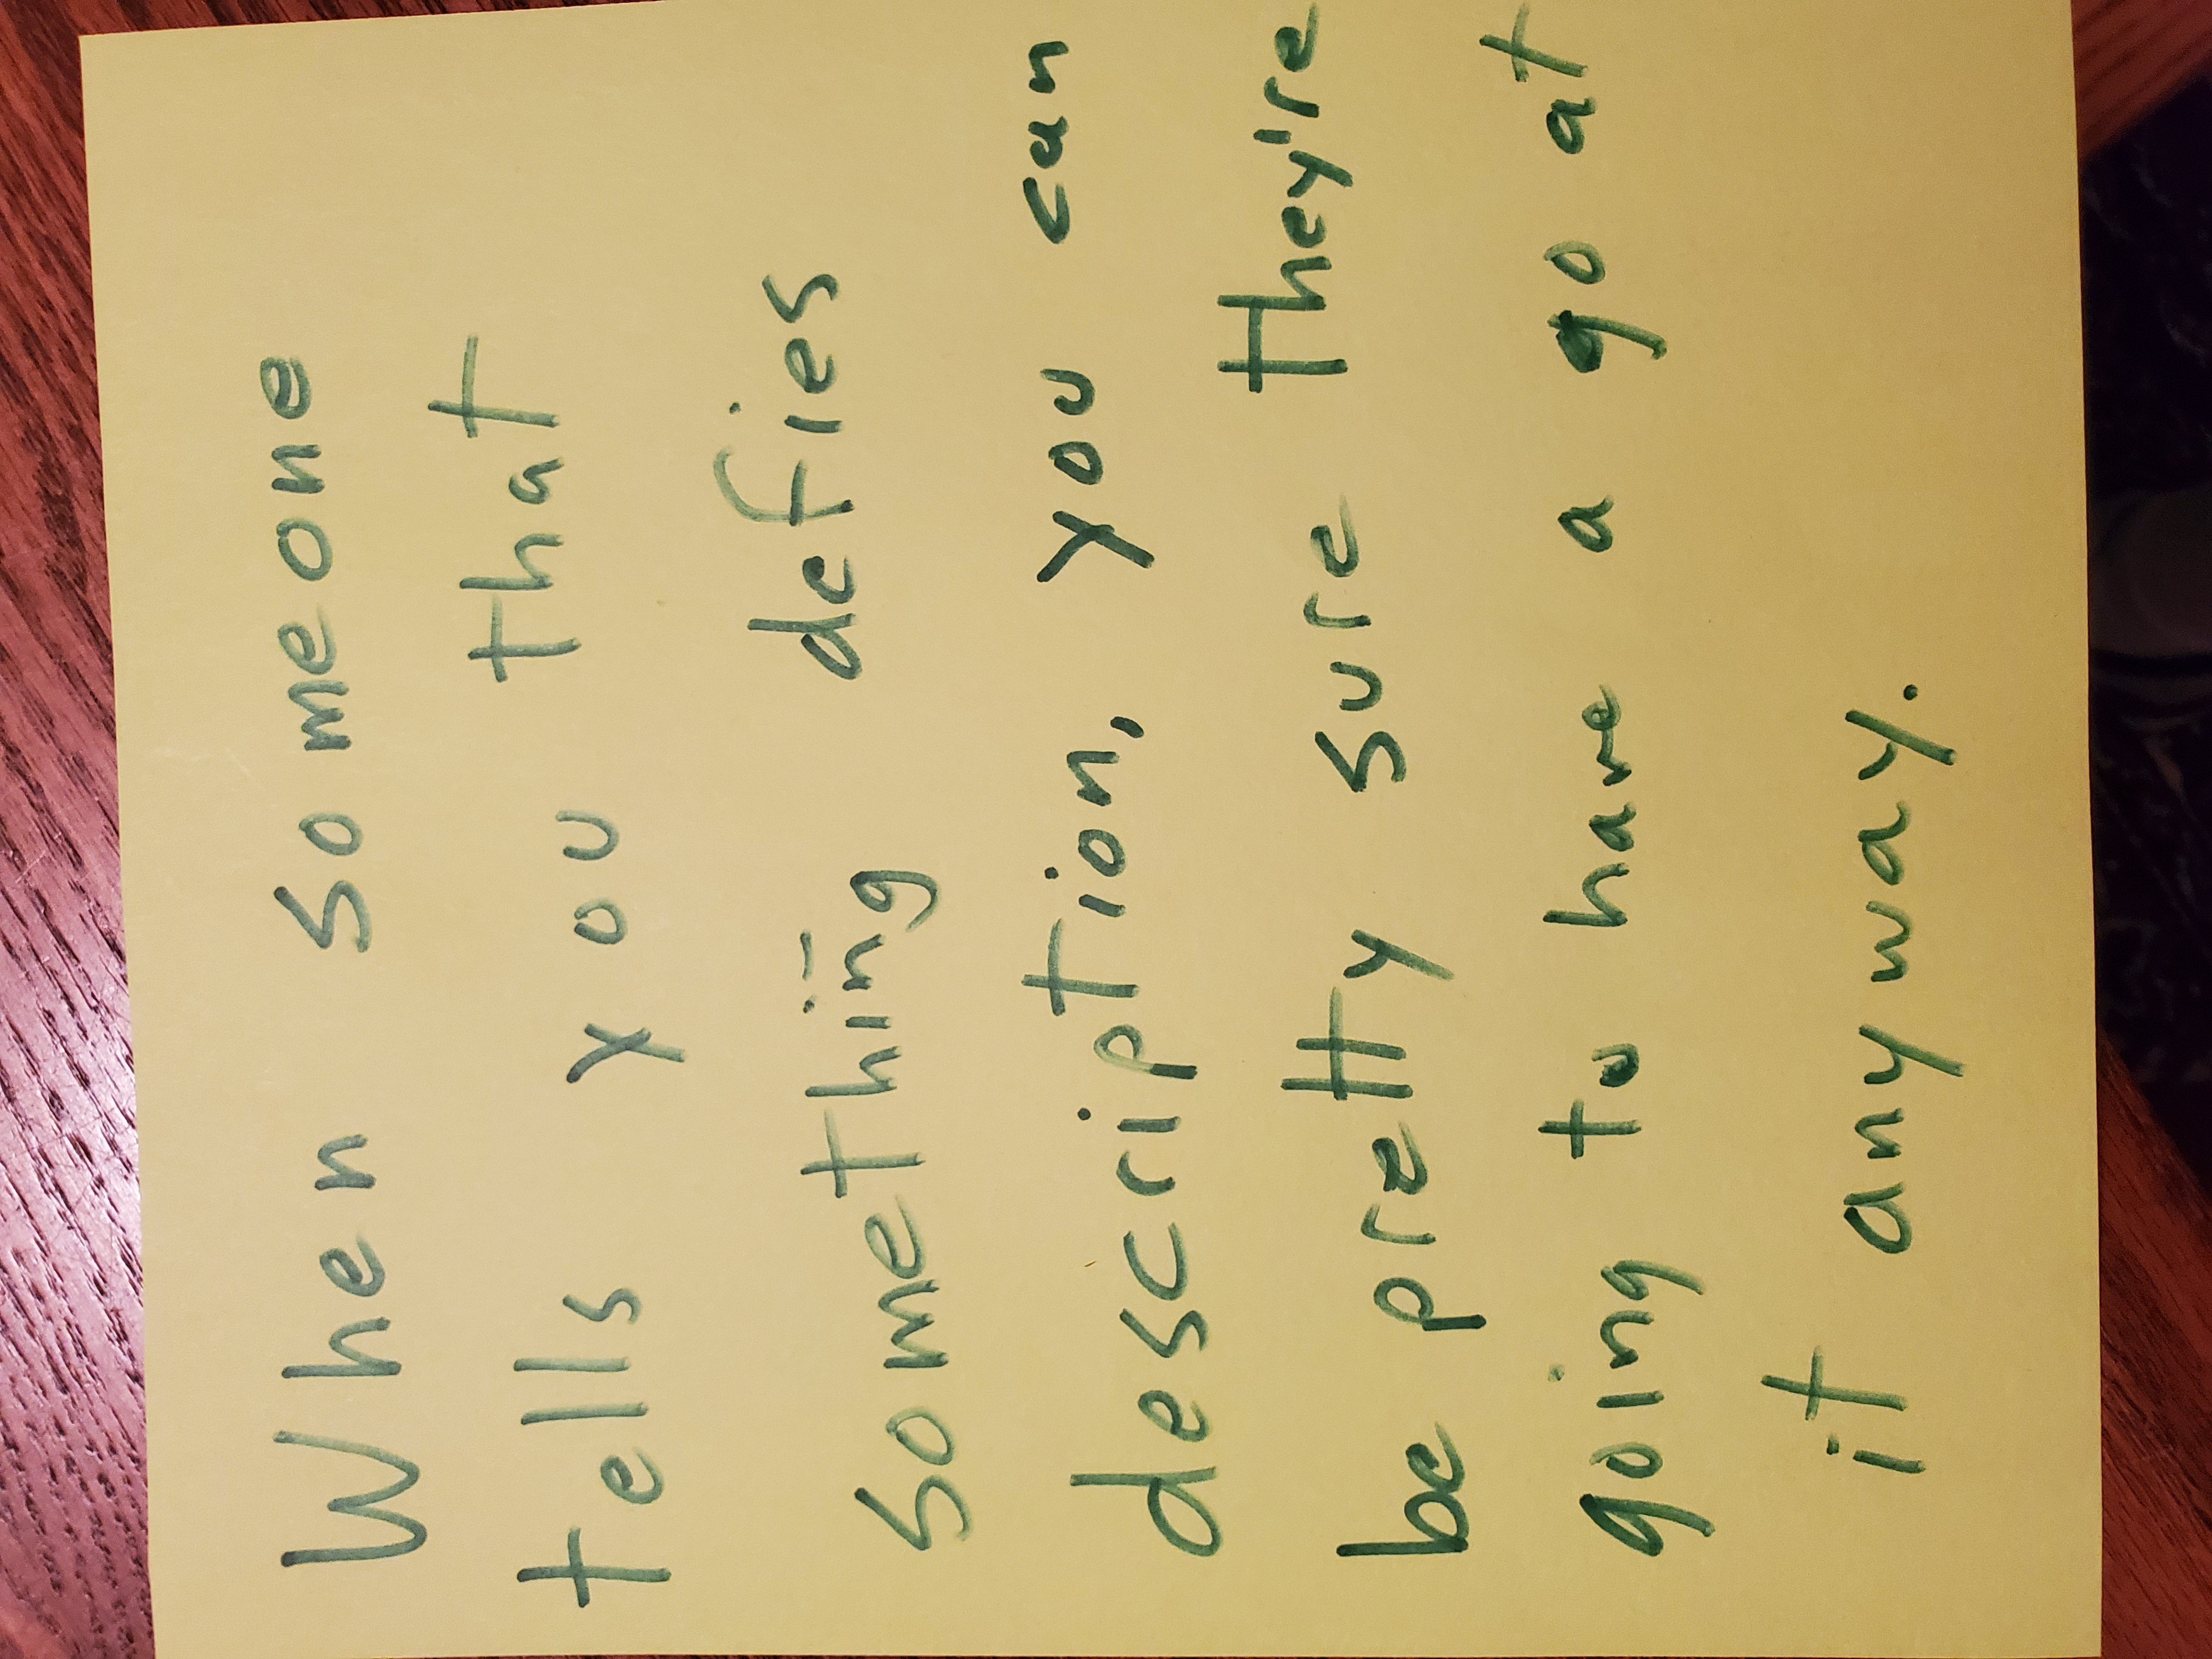 When someone
tells you that
something defies
description, you can
be pretty sure they're
going to have a go at
it anyway.